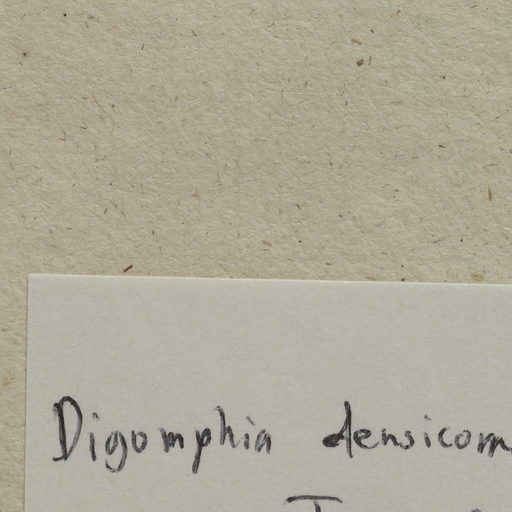 Digomphia densicom